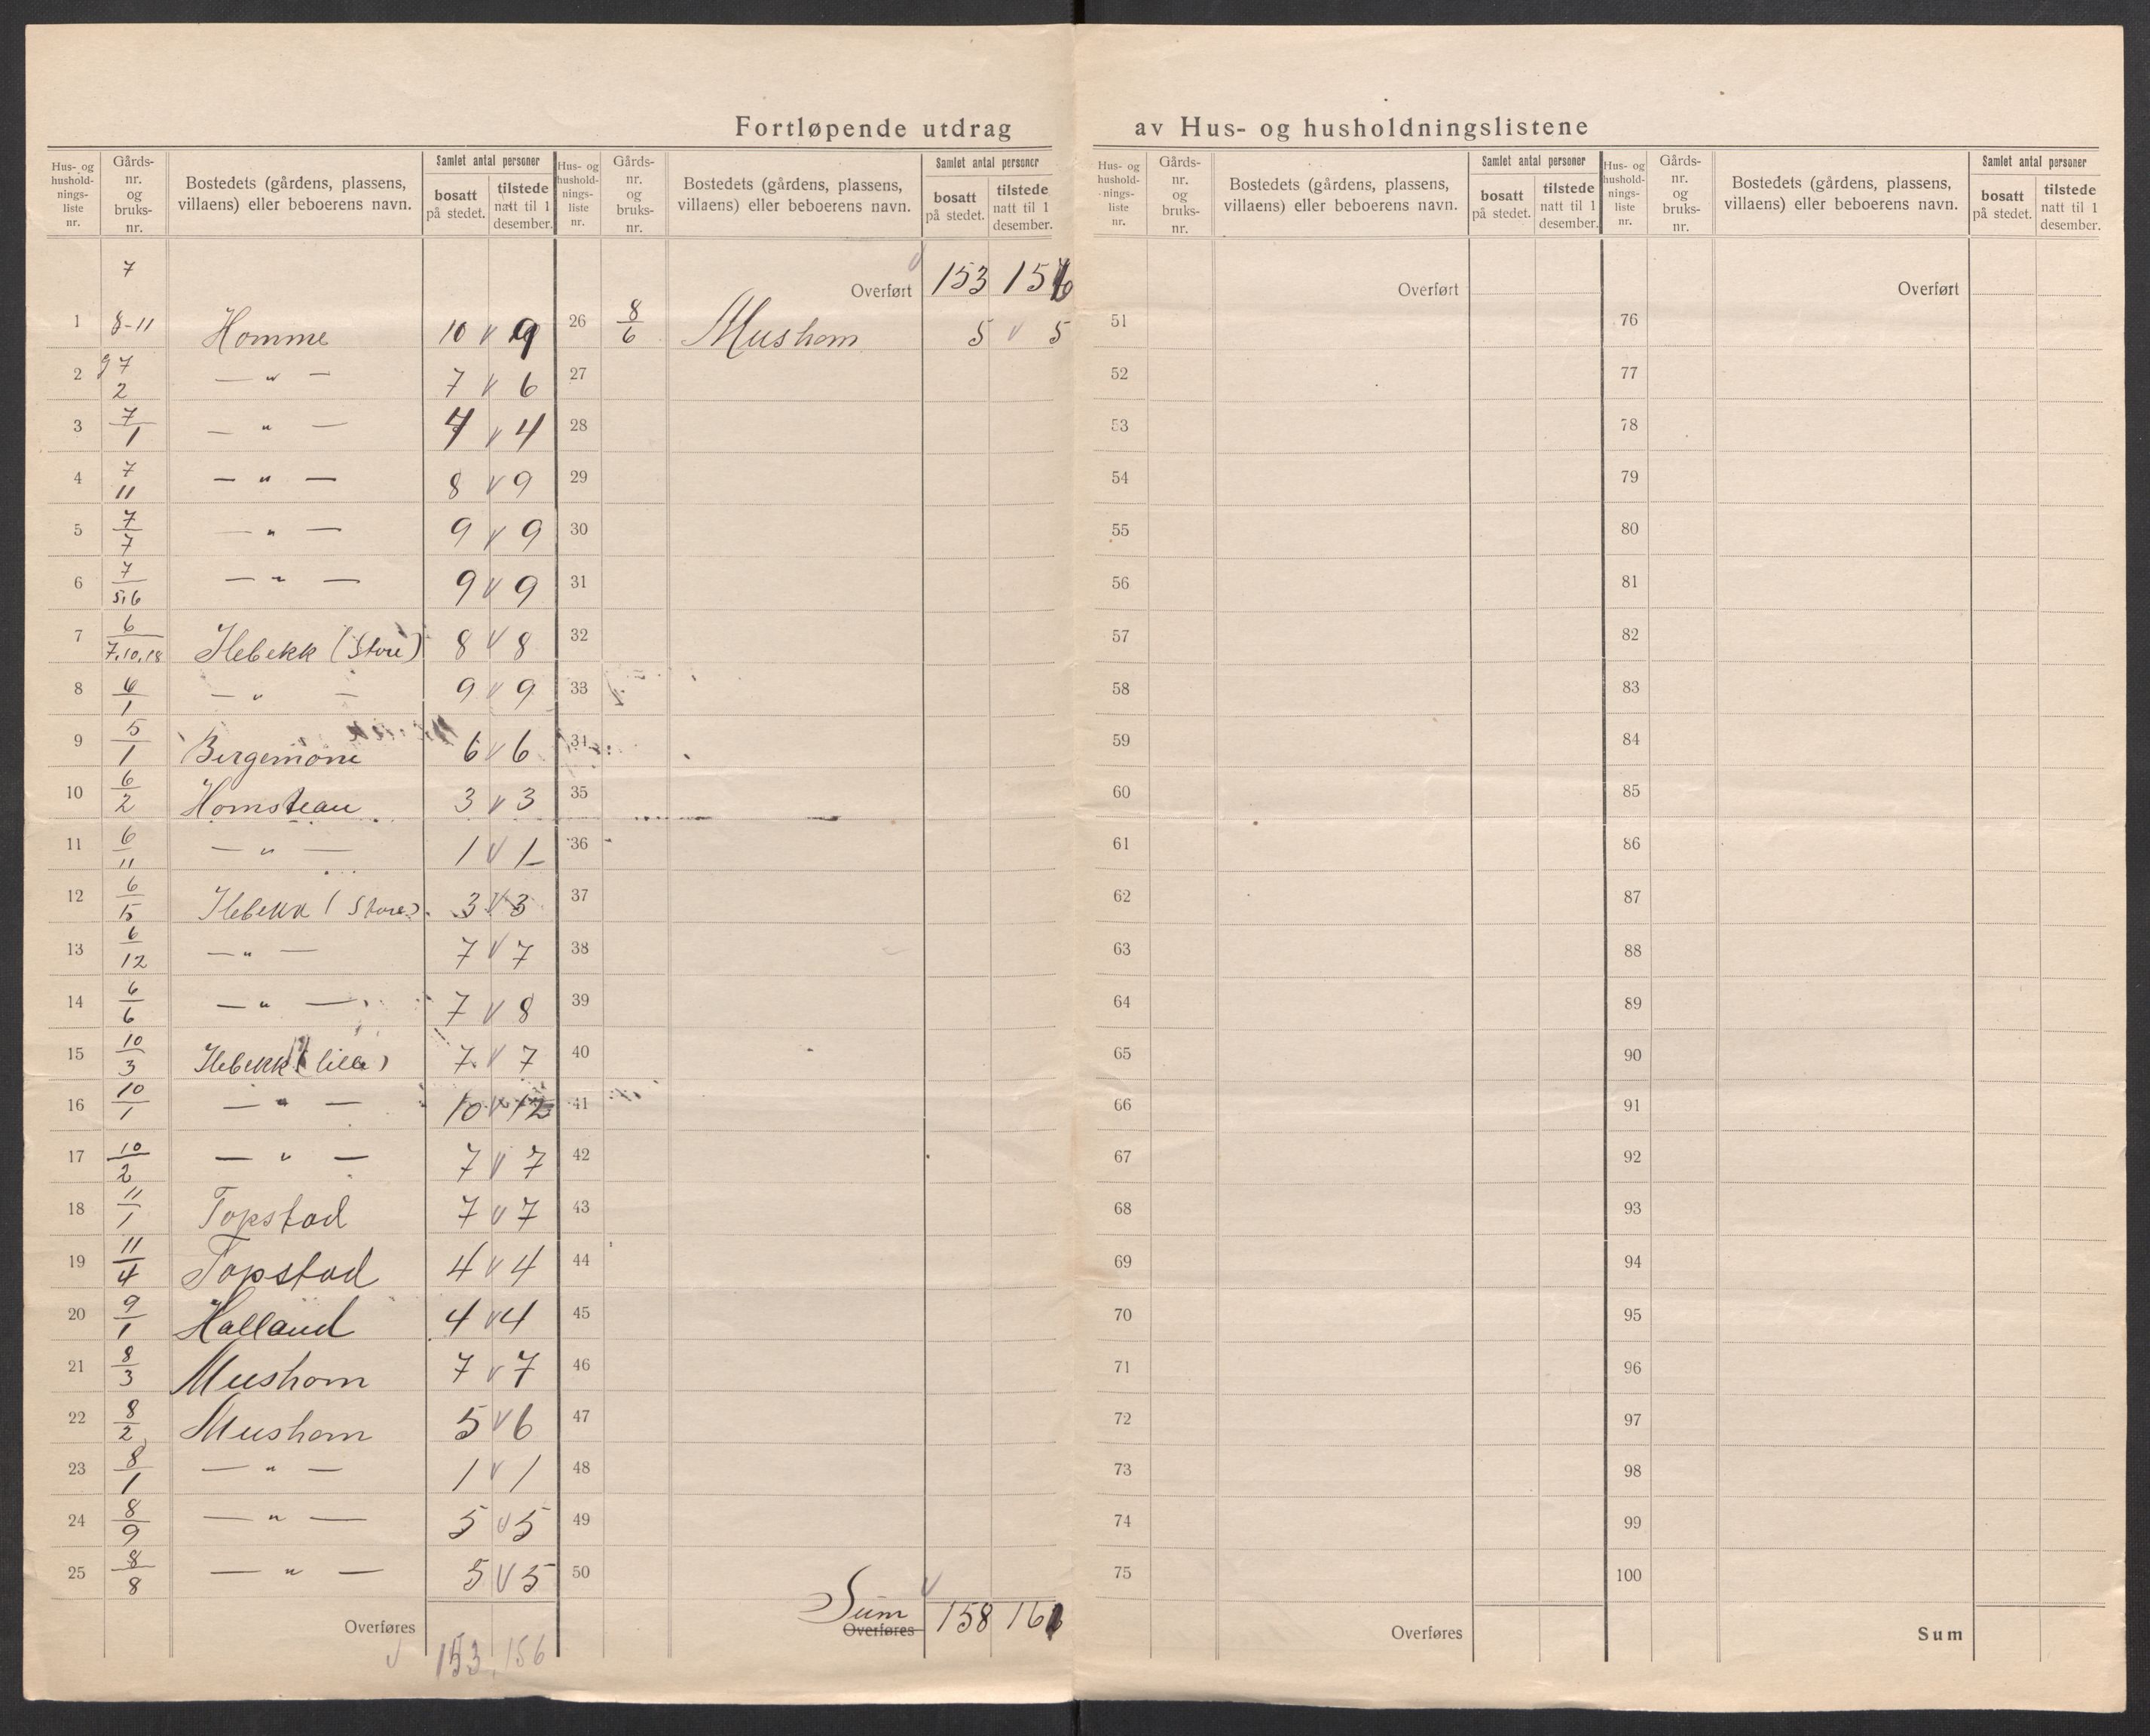 Fortløpende utdrag av Hus- og husholdningslistene
Hus- og hushold-nings-liste nr. Gårds-nr. og bruks-nr. Bostedets (gårdens, plassens, villaens) eller beboerens navn. Samlet antal personer bosatt på stedet. tilstede natt til 1 desember.
Hus- og hushold-nings-liste nr. Gårds-nr. og bruks-nr. Bostedets (gårdens, plassens, villaens) eller beboerens navn. Samlet antal personer bosatt på stedet. tilstede natt til 1 desember.
Hus- og hushold-nings-liste nr. Gårds-nr. og bruks-nr. Bostedets (gårdens, plassens, villaens) eller beboerens navn. Samlet antal personer bosatt på stedet. tilstede natt til 1 desember.
Hus- og hushold-nings-liste nr. Gårds-nr. og bruks-nr. Bostedets (gårdens, plassens, villaens) eller beboerens navn. Samlet antal personer bosatt på stedet. tilstede natt til 1 desember.
7
1 8-11 Homme 10 v 9
2 7/2 — " — 7 v 6
3 7/1 — " — 4 v 4
4 7/11 — " — 8 v 9
5 7/7 — " — 9 v 9
6 7/5,6 — " — 9 v 9
7 6/7,10,18 Ilebekk (Store) 8 v 8
8 6/1 — " — 9 v 9
9 5/1 Bergemone 6 v 6
10 6/2 Homstean 3 v 3
11 6/11 — " — 1 v 1
12 6/15 Ilebekk (Store) 3 v 3
13 6/12 — " — 7 v 7
14 6/6 — " — 7 v 8
15 10/3 Ilebekk (lille) 7 v 7
16 10/1 — " — 10 v 12
17 10/2 — " — 7 v 7
18 11/1 Topstad 7 v 7
19 11/4 Topstad 4 v 4
20 9/1 Halland 4 v 4
21 8/3 Mushom 7 v 7
22 8/2 Mushom 5 v 6
23 8/1 — " — 1 v 1
24 8/9 — " — 5 v 5
25 8/8 — " — 5 v 5
Overføres v 153 156
Overført v 153 156
26 8/6 Mushom 5 v 5
27
28
29
30
31
32
33
34
35
36
37
38
39
40
41
42
43
44
45
46
47
48
49
50
Sum v 158 161
Overføres
Overført
51
52
53
54
55
56
57
58
59
60
61
62
63
64
65
66
67
68
69
70
71
72
73
74
75
Overføres
Overført
76
77
78
79
80
81
82
83
84
85
86
87
88
89
90
91
92
93
94
95
96
97
98
99
100
Sum